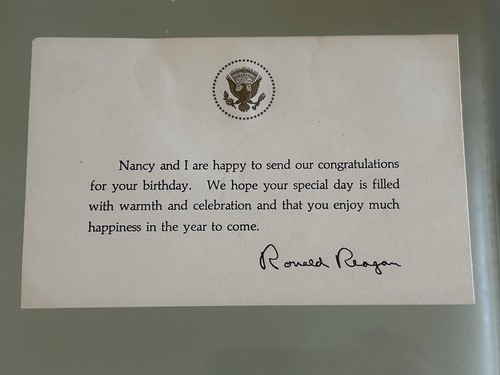 Nancy and I are happy to send our congratulations
for your birthday. We hope your special day is filled
with warmth and celebration and that you enjoy much
happiness in the year to come.
Ronald Reagan